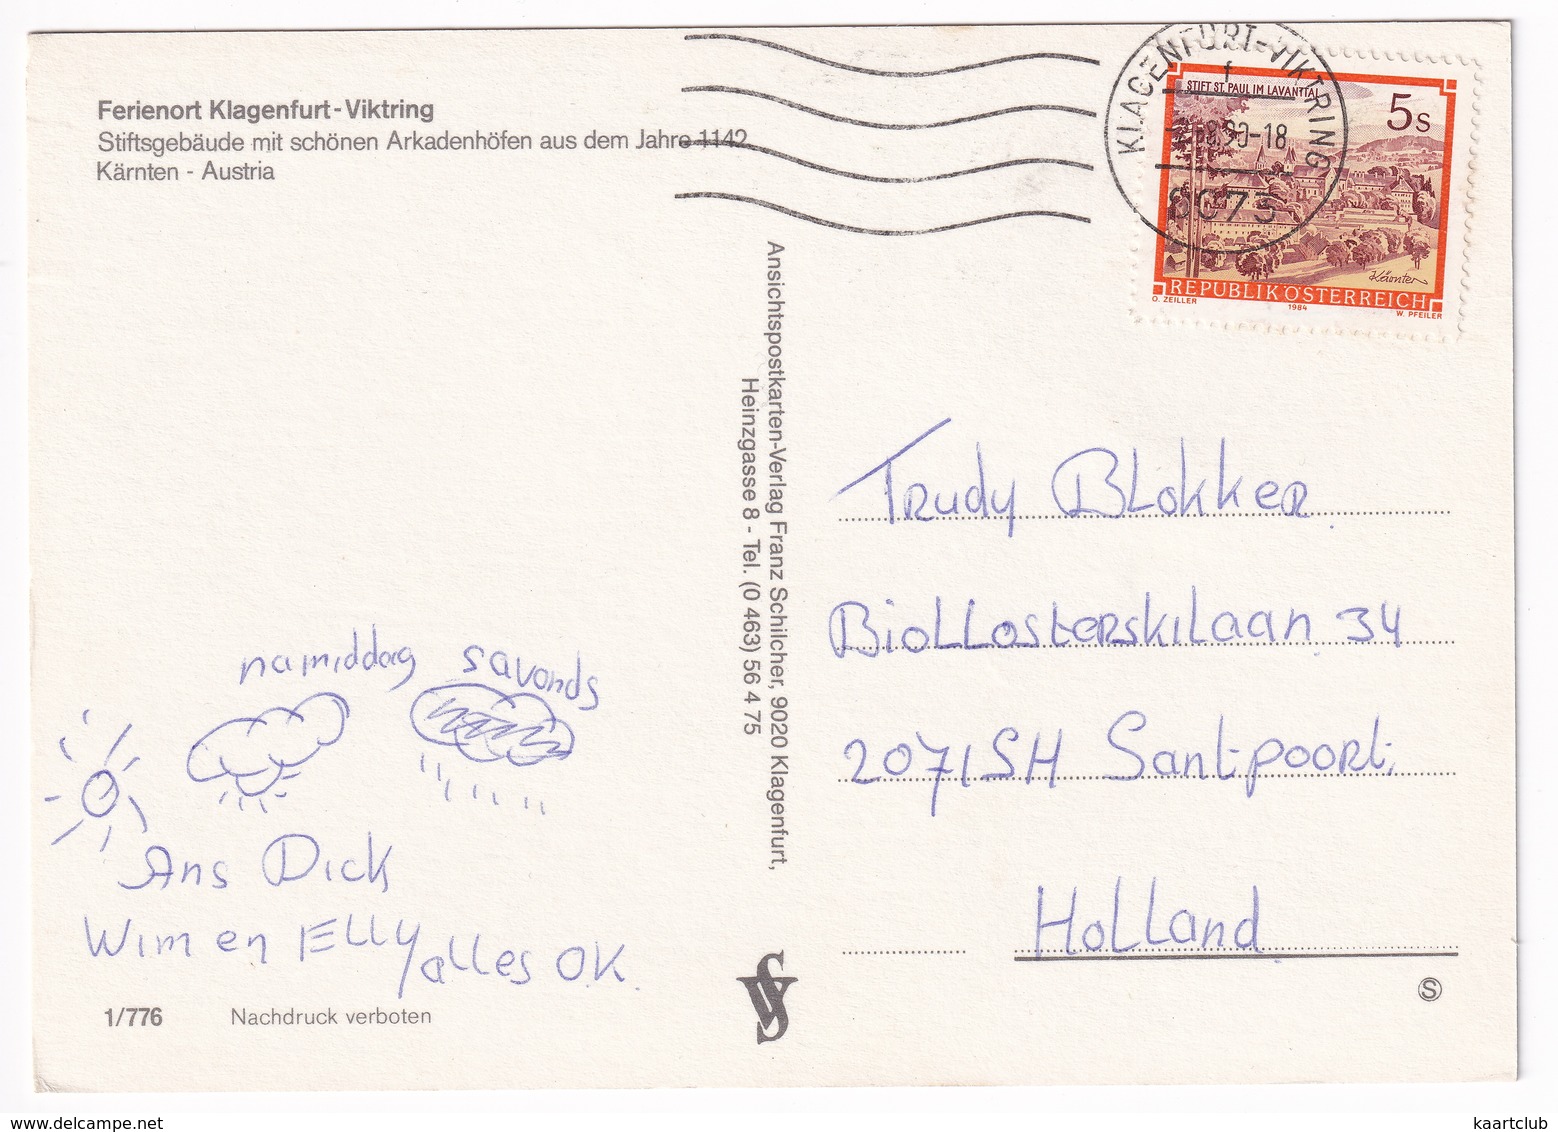 Ferienort Klagenfurt-Viktring
Stiftsgebäude mit schönen Arkadenhöfen aus dem Jahre 1142
Kärnten - Austria
KLAGENFURT-VIKTRING
f
8.90-18
9073
STIFT ST. PAUL IM LAVANTTAL
5s
Kärnten
REPUBLIK ÖSTERREICH
O. ZEILLER
1984
W. PFEILER
Ansichtspostkarten-Verlag Franz Schilcher, 9020 Klagenfurt,
Heinzgasse 8 - Tel. (0 463) 56 4 75
namiddag savonds
Ans Dick
Wim en Elly alles OK.
Trudy Blokker
Biollosterskilaan 34
2071SH Santpoort
Holland
1/776 Nachdruck verboten
S
kaartclub